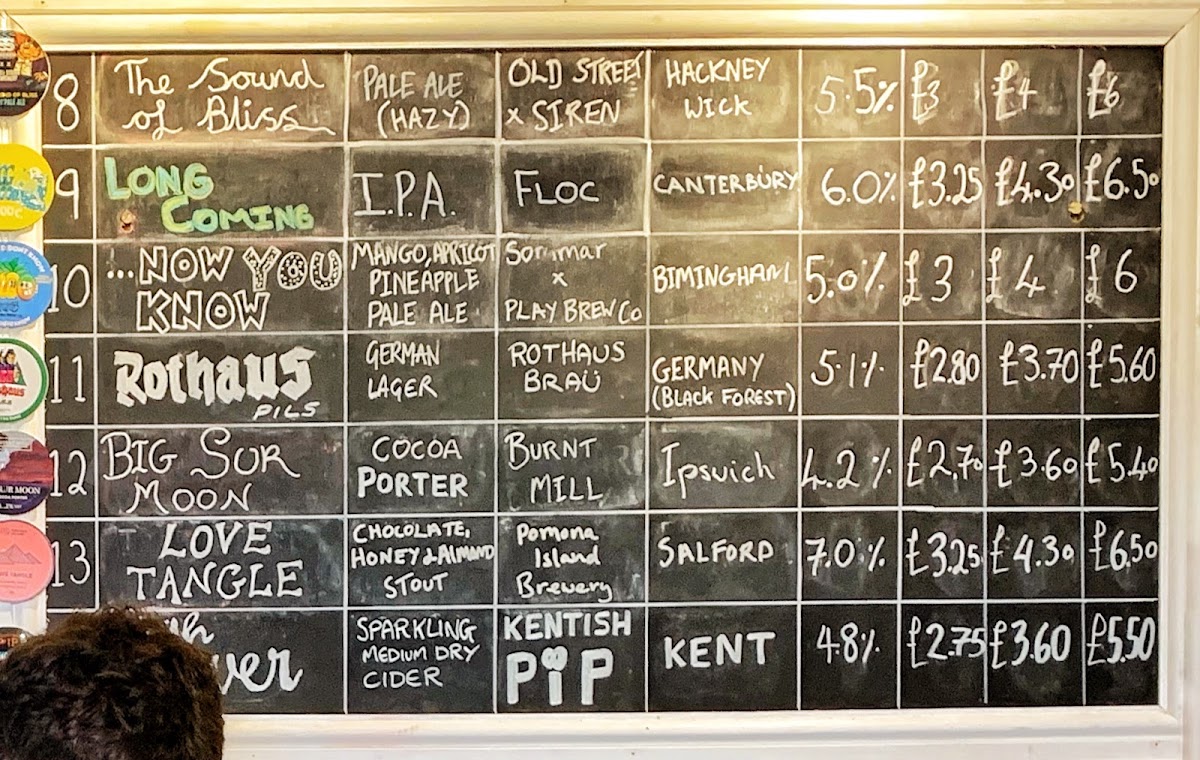 8 The Sound of Bliss PALE ALE (HAZY) OLD STREET x SIREN HACKNEY WICK 5.5% £3 £4 £6
9 LONG COMING I.P.A. FLOC CANTERBURY 6.0% £3.25 £4.30 £6.50
10 ...NOW YOU KNOW MANGO, APRICOT PINEAPPLE PALE ALE Sommar x PLAY BREW Co BIMINGHAM 5.0% £3 £4 £6
11 Rothaus PILS GERMAN LAGER ROTHAUS BRAÜ GERMANY (BLACK FOREST) 5.1% £2.80 £3.70 £5.60
12 BIG SUR MOON COCOA PORTER BURNT MILL Ipswich 4.2% £2.70 £3.60 £5.40
13 LOVE TANGLE CHOCOLATE, HONEY & ALMAND STOUT Pomona Island Brewery SALFORD 7.0% £3.25 £4.30 £6.50
SPARKLING MEDIUM DRY CIDER KENTISH PiP KENT 4.8% £2.75 £3.60 £5.50